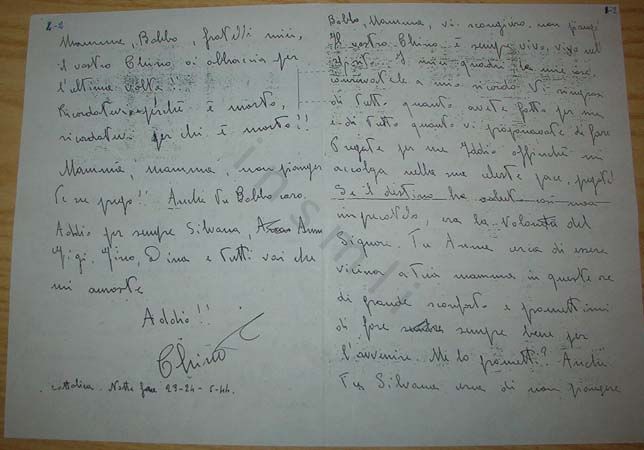 2-2
Mamma, Babbo, fratelli miei,
il vostro Chino vi abbraccia per
l'ultima volta!
Ricordatevi perché è morto,
ricordatevi per chi è morto!!
Mamma, mamma, non piangere
te ne prego!! Anche tu Babbo caro.
Addio per sempre Silvana, Anna
Gigi, Nino, Dina e tutti voi che
mi amaste
Addio!!
Chino
Cattolica. Notte fra 23-24-5-44.
1-2
Babbo, Mamma, vi scongiuro, non piangete
Il vostro Chino è sempre vivo, vivo nel
I miei quadri le mie cose
a mio ricordo. Vi ringrazio
di tutto quanto avete fatto per me
e di tutto quanto vi proponevate di fare
Pregate per me Iddio affinché mi
accolga nella sua celeste pace, pregate
Se il destino ha voluto così non
era la volontà del
Signore. Tu Anna cerca di essere
vicina a tua mamma in queste ore
di grande sconforto e promettimi
di fare sempre bene per
l'avvenire. Me lo prometti? Anche
Tu Silvana cerca di non piangere
insmli